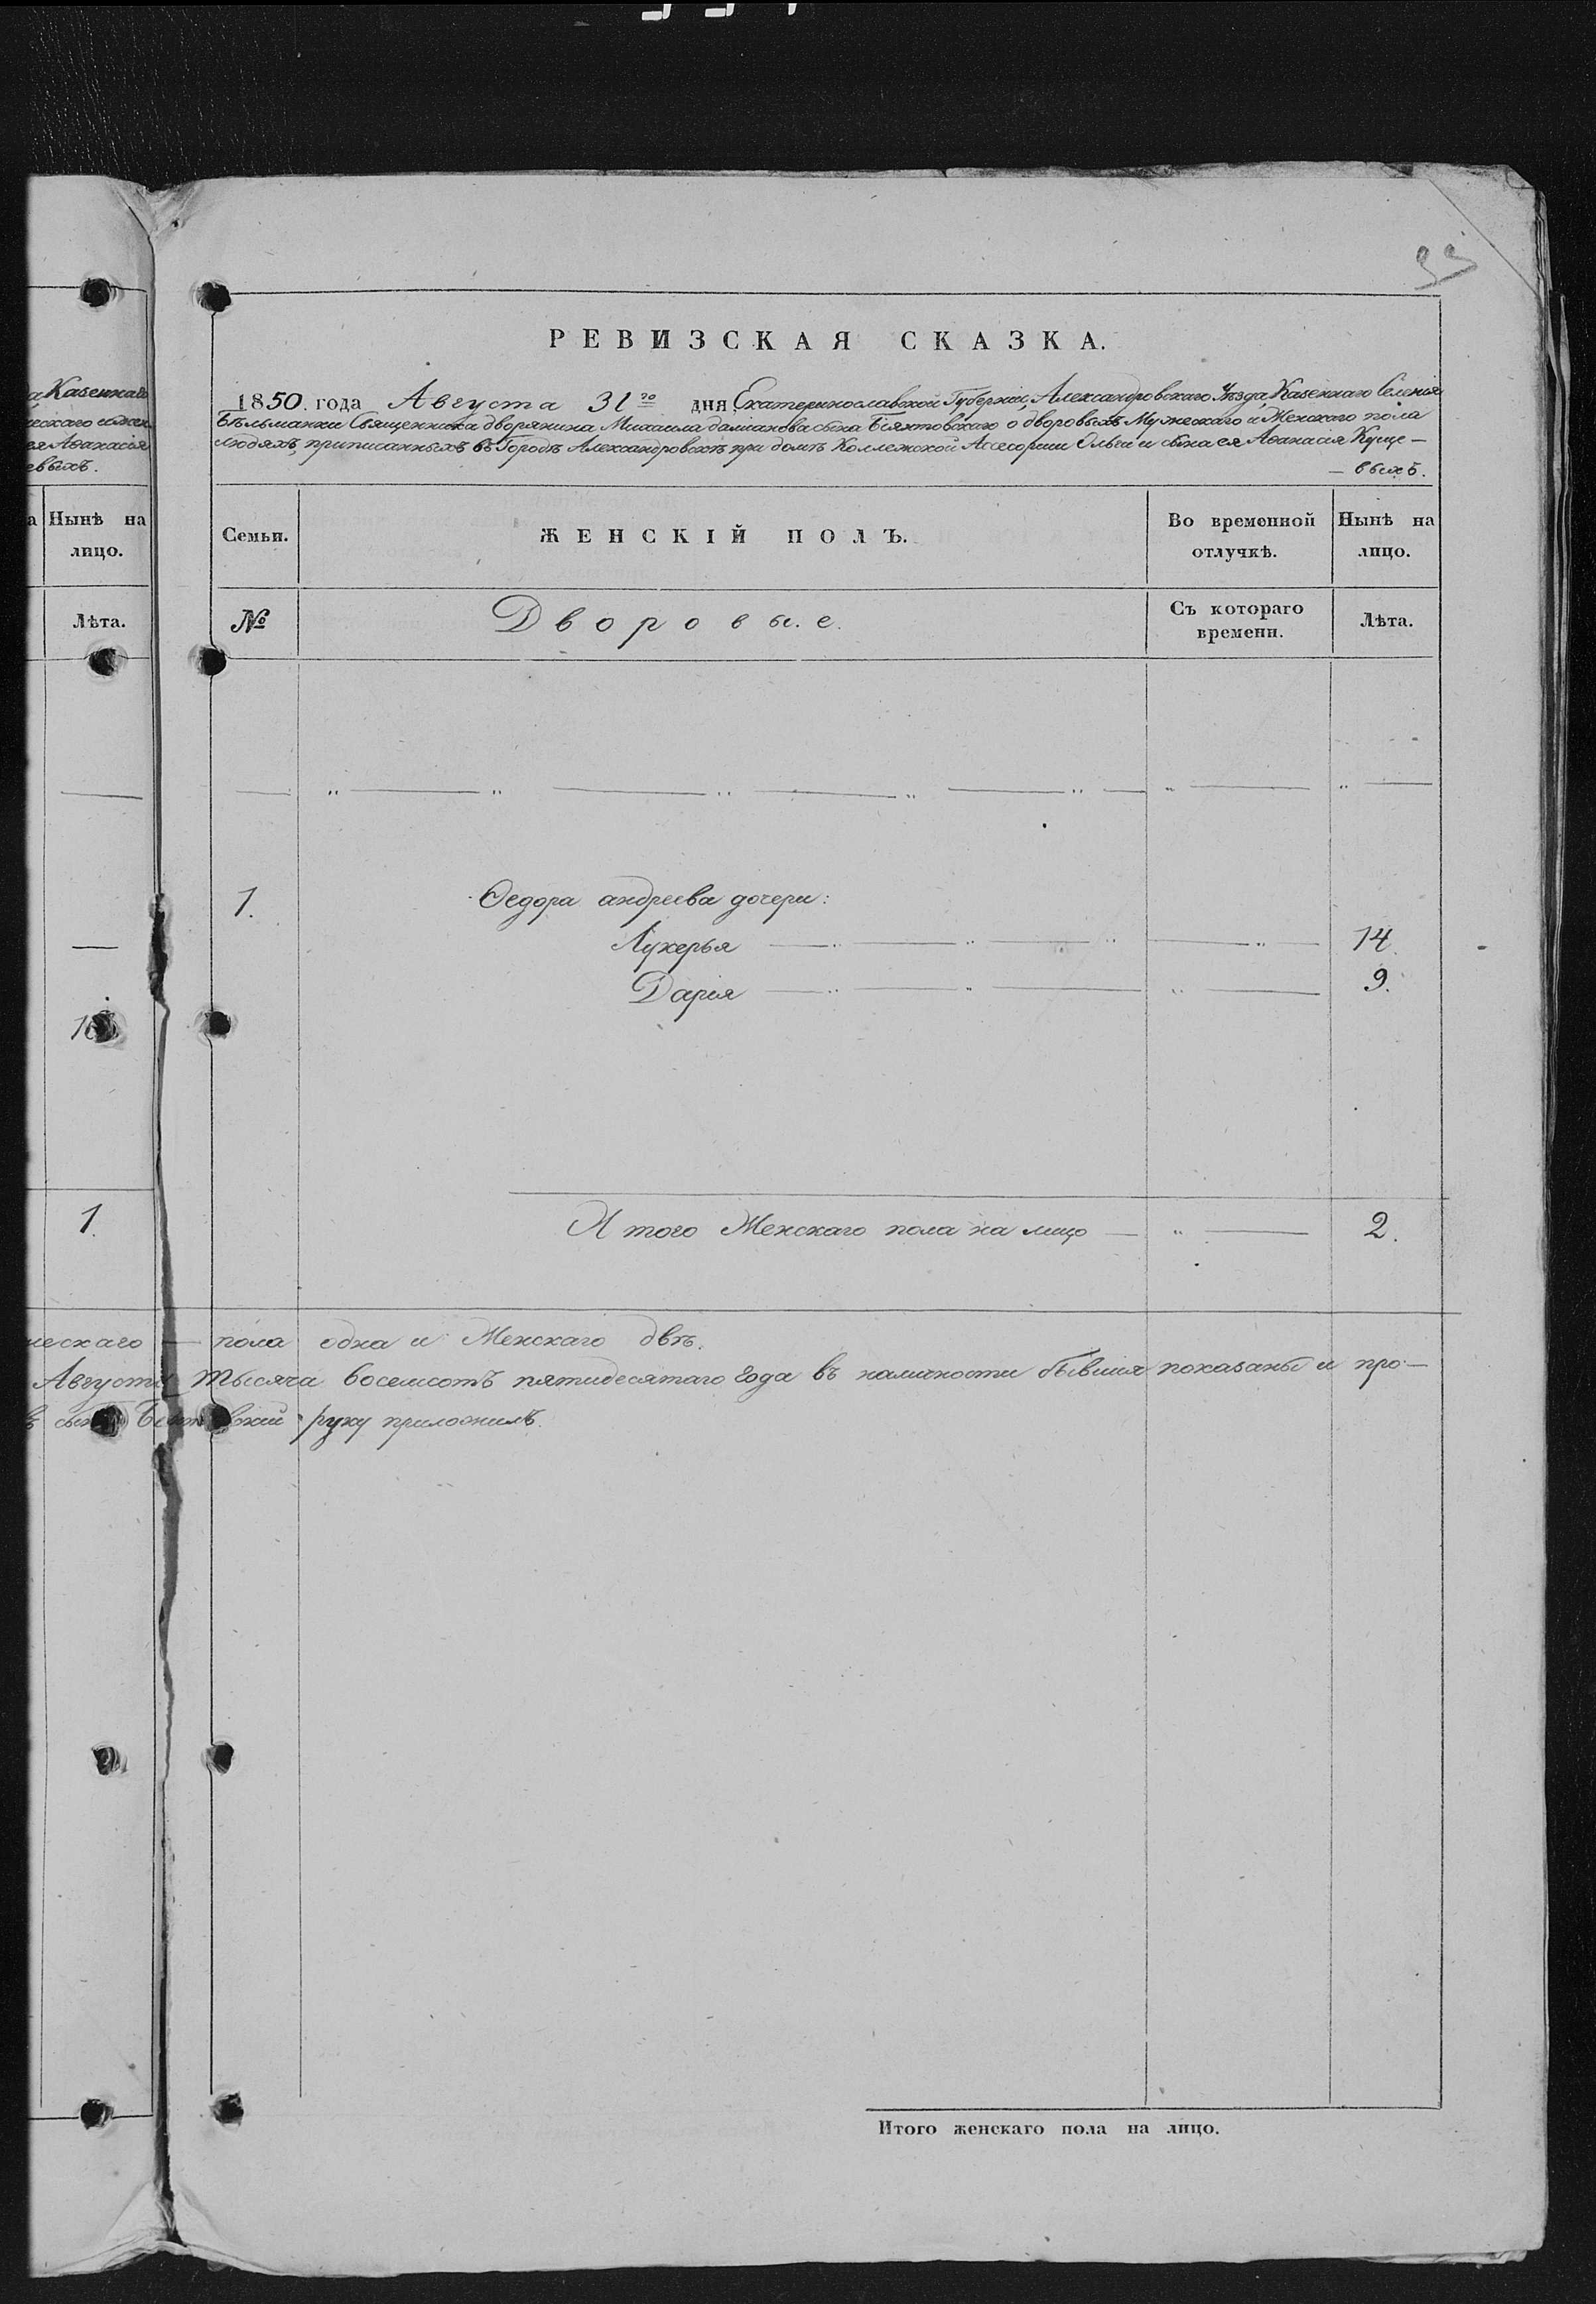 РЕВИЗСКАЯ СКАЗКА.
1850 года Августа 31го дня Екатеринославской Губернии, Александровского Уезда, Казеннаго Селенія
Бѣльманки Священника дворянина Михаила даміанова сына Біянтовскаго о дворовыхъ Мужескаго и Женскаго пола
людяхъ, приписанныхъ въ Городѣ Александровскѣ при домѣ Коллежской Ассесорши Ольги и сына ея Аѳанасія Куще—
—выхъ.
а, Казеннаго
ея Аѳанасія
евыхъ.
Нынѣ на
лицо.
Лѣта.
Семьи.
ЖЕНСКІЙ ПОЛЪ.
Во временной
отлучкѣ.
Нынѣ на
лицо.
№
Дворовые.
Съ котораго
времени.
Лѣта.
1.
Ѳедора андреева дочери:
Лукерья 14.
Дарія 9.
1.
И того Женскаго пола на лицо 2.
ческаго — пола одна и Женскаго двѣ.
Августа тысяча восемсотъ пятидесятаго года въ наличности бывшія показаны и про—
руку приложилъ.
Итого женскаго пола на лицо.